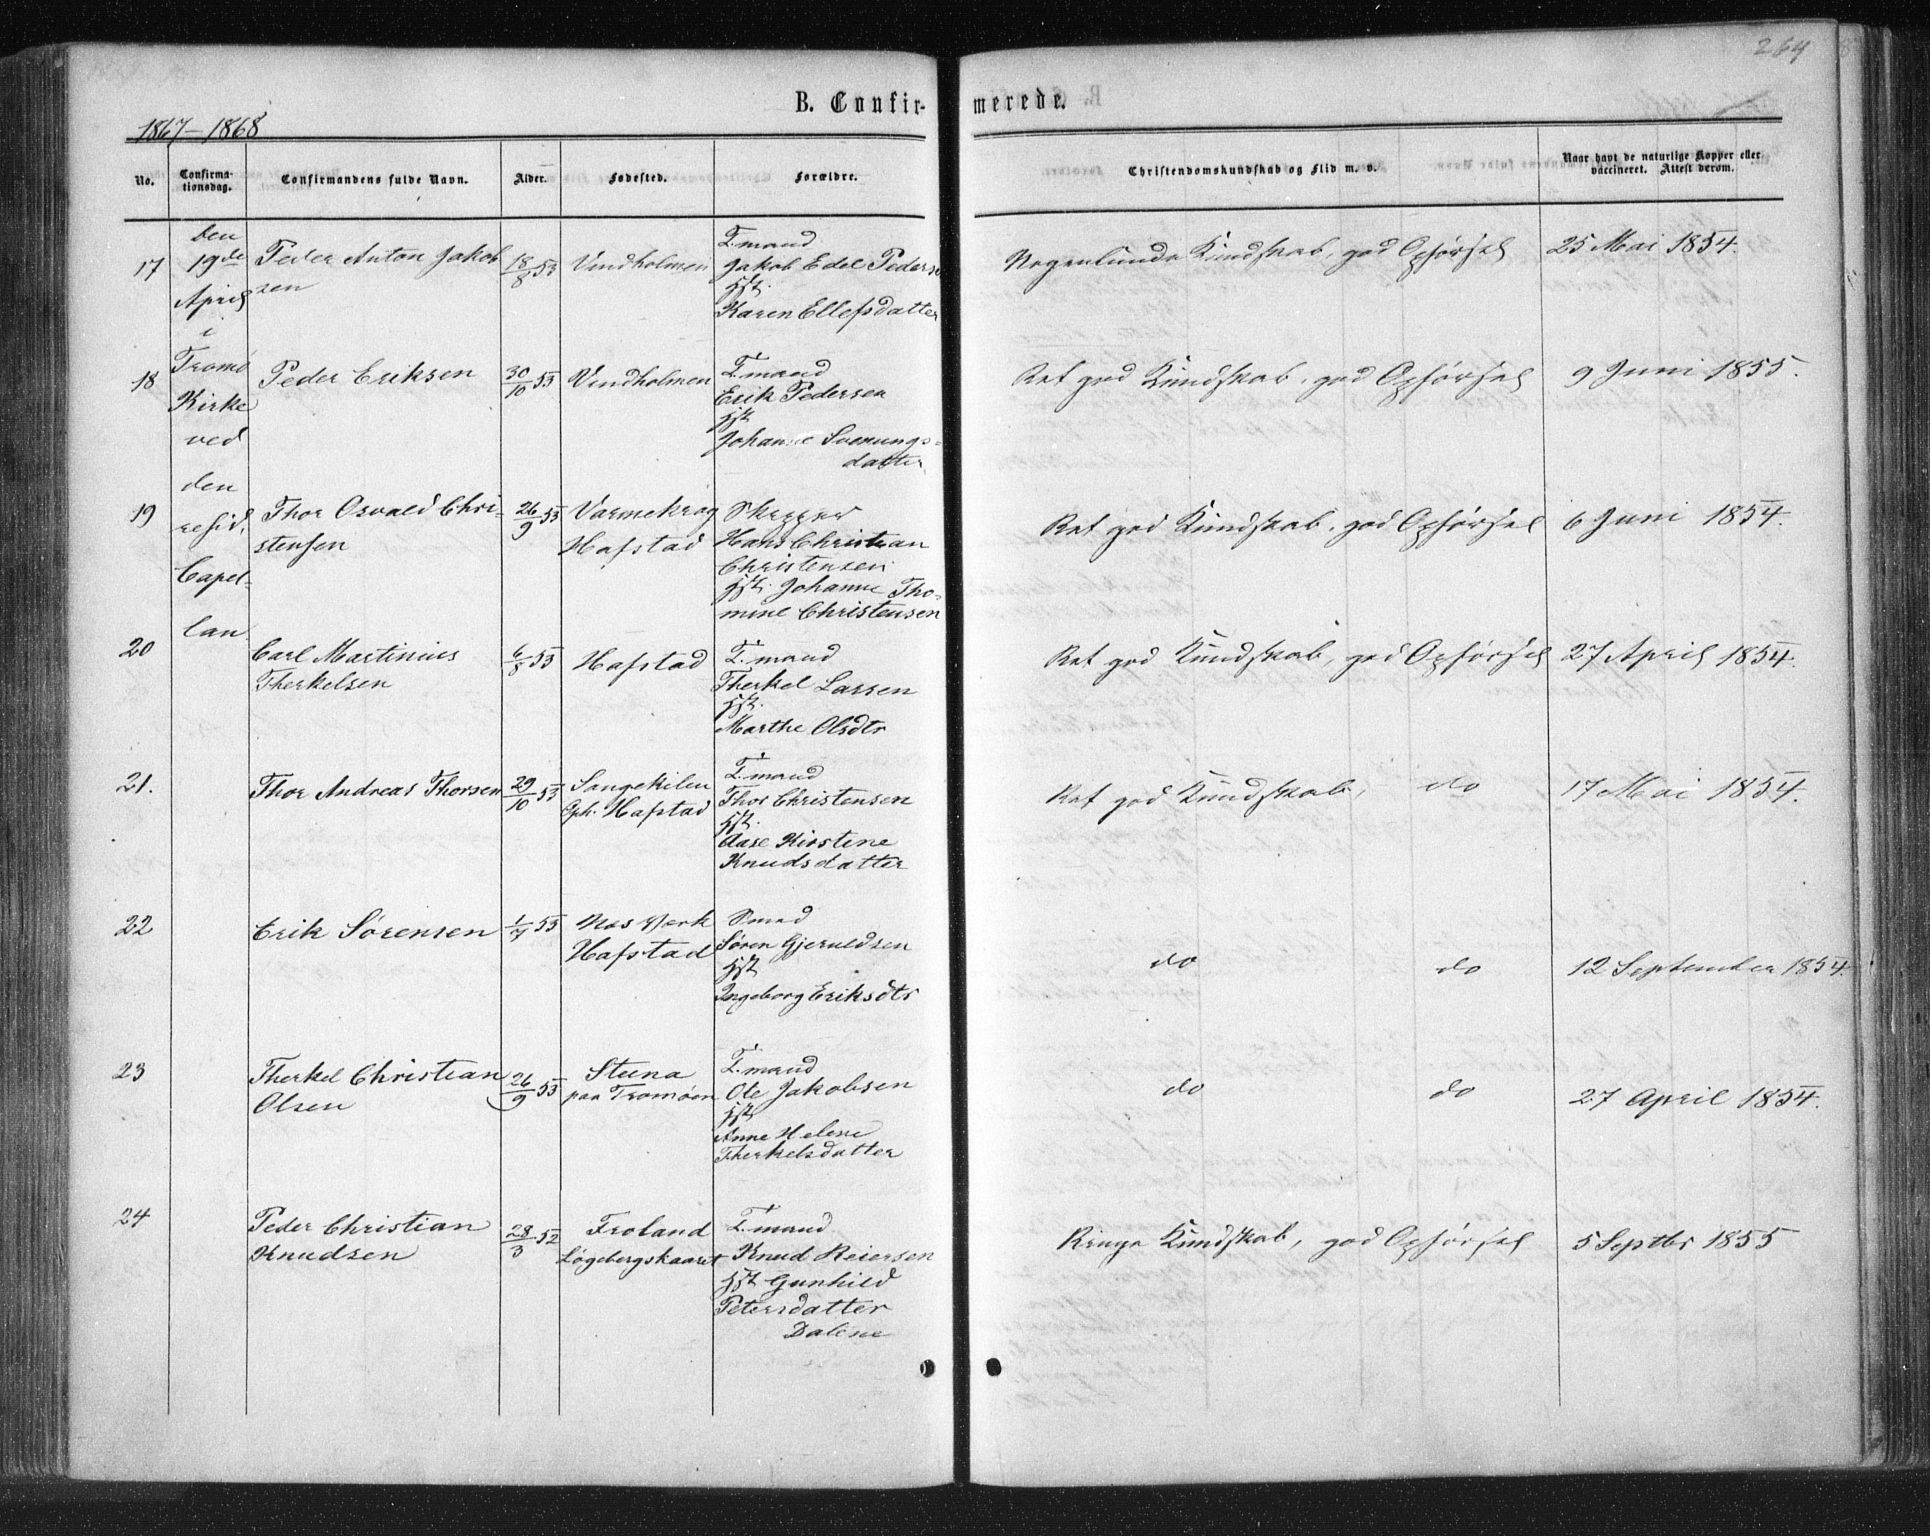 264
B. Confirmerede.
1867-1868
No.
Confirmationsdag.
Confirmandens fulde Navn.
Alder.
Fødested.
Forældre.
Christendomskundskab og Flid m. v.
Naar havt de naturlige Kopper eller
vaccineret. Attest derom.
Den
19de
April
i
Tromø
Kirke
ved
den
resid.
Capel-
lan
17
Peder Anton Jakob
sen
18/8 53
Vindholmen
T. mand
Jakob Edel Peders
Hst.
Karen Ellefsdatter
Nogenlunde Kundskab, god Opførsel
25 Mai 1854.
18
Peder Eriksen
30/10 53
Vindholmen
T. mand
Erik Pedersen
Hst
Johanne Svenungs-
datter
Ret god Kundskab, god Opførsel
9 Juni 1855.
19
Thor Osvald Chri-
stensen
26/9 53
Varmekrog
Hafstad
Skipper
Hans Christian
Christensen
Hst. Johanne Tho-
mine Christensen
Ret god Kundskab, god Opførsel
6 Juni 1854.
20
Carl Martinius
Therkelsen
6/8 53
Hafstad
T. mand
Therkel Larsen
Hst.
Marthe Olsdtr
Ret god Kundskab, god Opførsel
27 April 1854.
21.
Thor Andreas Thorsen
29/10 53
Songekilen
Oph. Hafstad
T. mand
Thor Christensen
Hst.
Aase Kirstine
Knudsdatter
Ret god Kundskab, do
17 Mai 1854.
22
Erik Sørensen
1/7 53
Næs Verk
Hafstad
Smed
Søren Gjeruldsen
Hst
Ingeborg Eriksdtr
do do
12 September 1854.
23
Therkel Christian
Olsen
26/9 53
Steena
paa Tromøen
T. mand
Ole Jakobsen
Hst
Anne Helene
Therkelsdatter
do do
27 April 1854.
24
Peder Christian
Knudsen
28/3 52
Froland
Løgebergskaaret
T. mand
Knud Reiersen
Hst Gunhild
Petersdatter
Dalene
Ringe Kundskab, god Opførsel
5 Septbr 1855